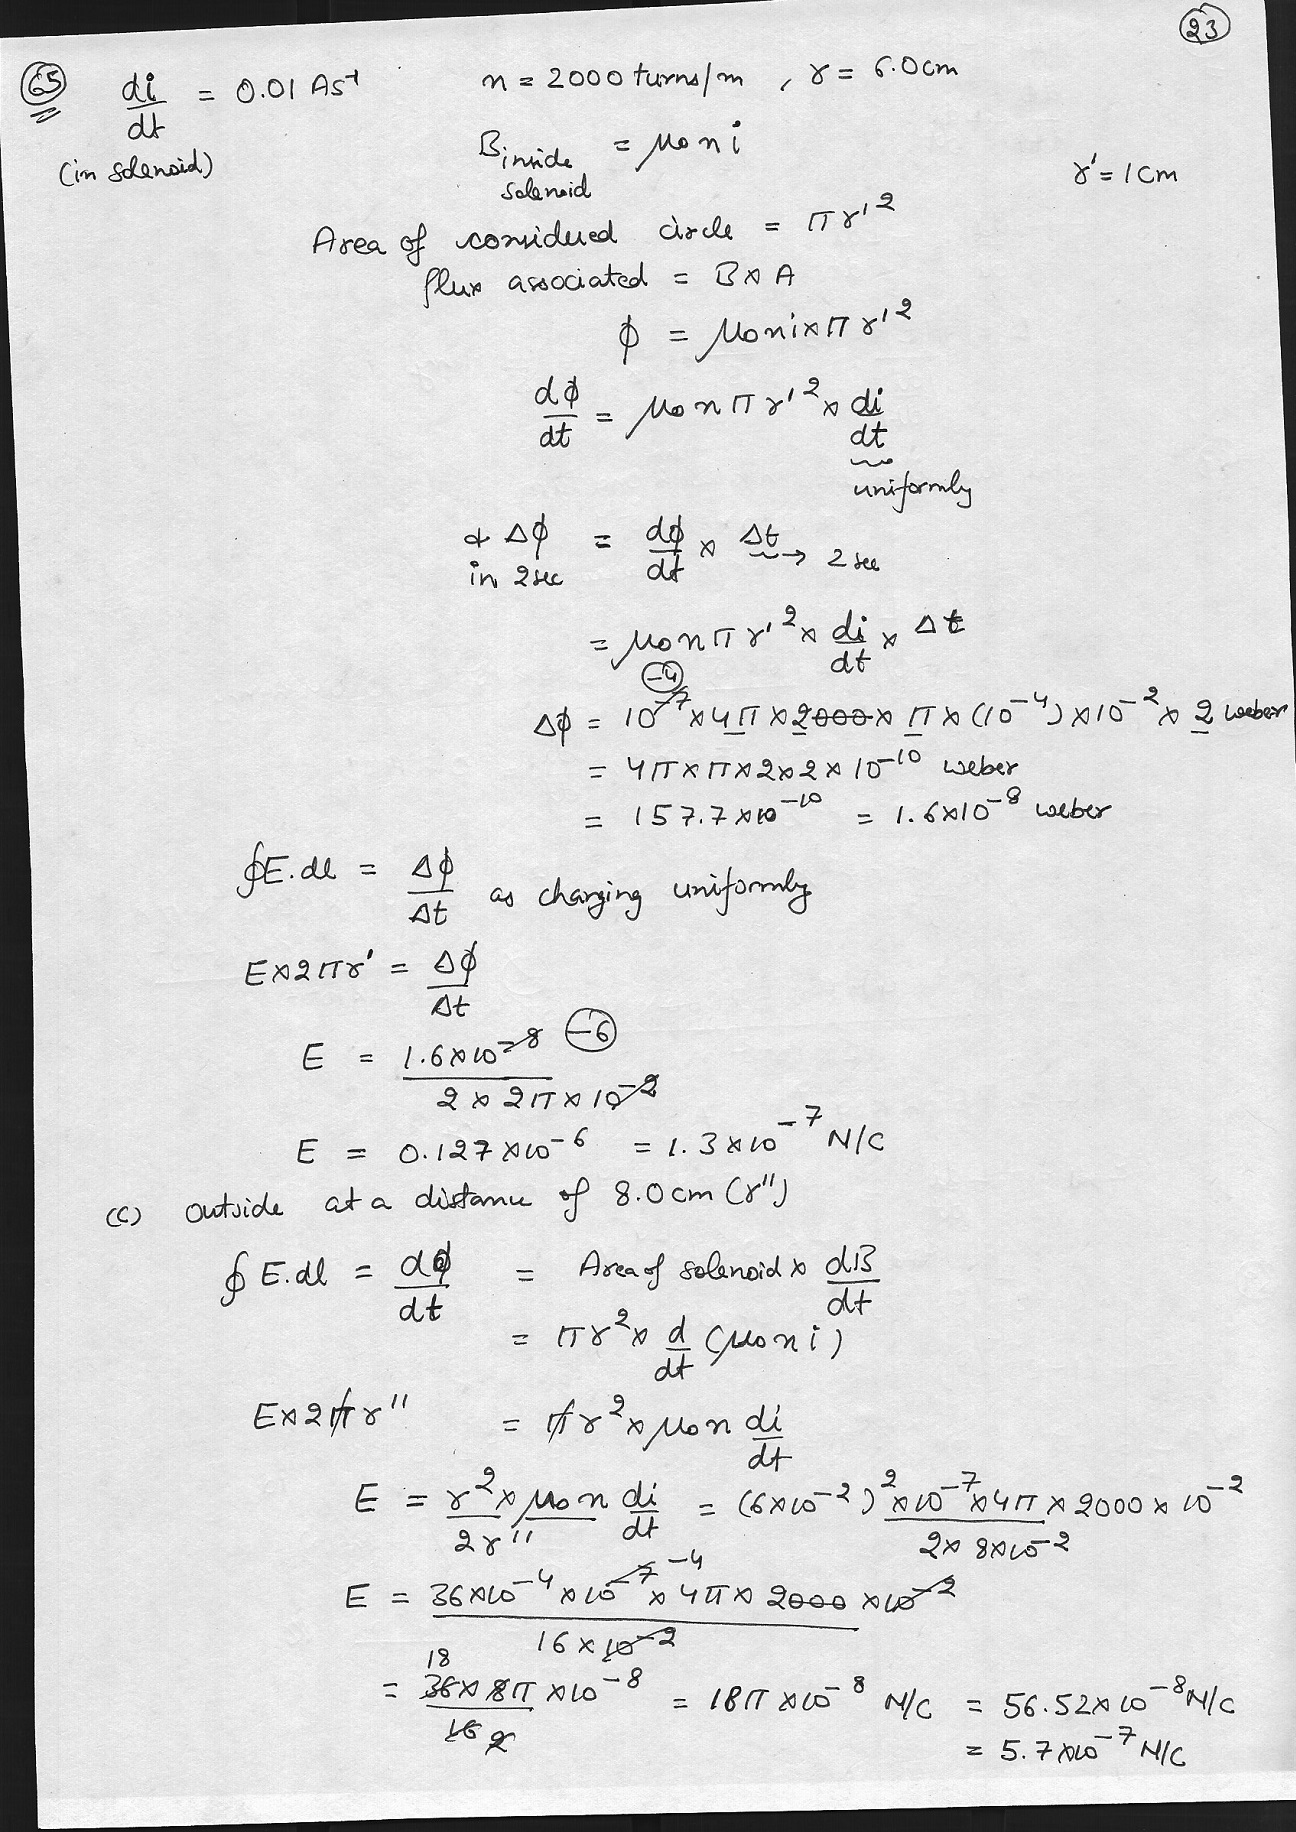 23
65 di/dt = 0.01 As⁻¹ n = 2000 turns/m , r = 6.0cm
(in solenoid)
B inside solenoid = μ₀ n i
r' = 1cm
Area of considered circle = πr'²
flux associated = B×A
ϕ = μ₀ni×πr'²
dϕ/dt = μ₀nπr'² × di/dt
uniformly
& Δϕ in 2sec = dϕ/dt × Δt → 2 sec
= μ₀nπr'² × di/dt × Δt
-4
Δϕ = 10⁻⁷×4π×2000×π×(10⁻⁴)×10⁻²×2 weber
= 4π×π×2×2×10⁻¹⁰ weber
= 157.7×10⁻¹⁰ = 1.6×10⁻⁸ weber
∮E.dl = Δϕ/Δt as charging uniformly
E×2πr' = Δϕ/Δt
E = 1.6×10⁻⁸/2×2π×10⁻² -6
E = 0.127×10⁻⁶ = 1.3×10⁻⁷ N/C
(c) outside at a distance of 8.0cm (r'')
∮E.dl = dϕ/dt = Area of solenoid × dB/dt
= πr² × d/dt (μ₀ni)
E×2πr'' = πr² × μ₀n di/dt
E = r²×μ₀n/2r'' di/dt = (6×10⁻²)²×10⁻⁷×4π×2000×10⁻²/2×8×10⁻²
E = 36×10⁻⁴×10⁻⁷ ⁻⁴×4π×2000×10⁻²/16×10⁻²
18
= 36×8π×10⁻⁸/16 2 = 18π×10⁻⁸ N/C = 56.52×10⁻⁸ N/C
= 5.7×10⁻⁷ N/C